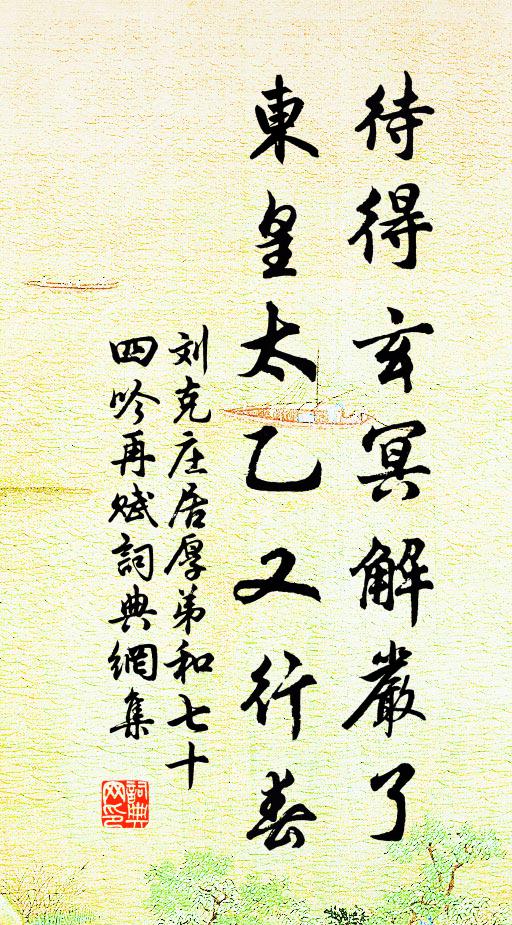 待得玄冥解嚴了
東皇太乙又行春
刘克庄居厚弟和七十
四吟再赋詞典網集
詞典
网印